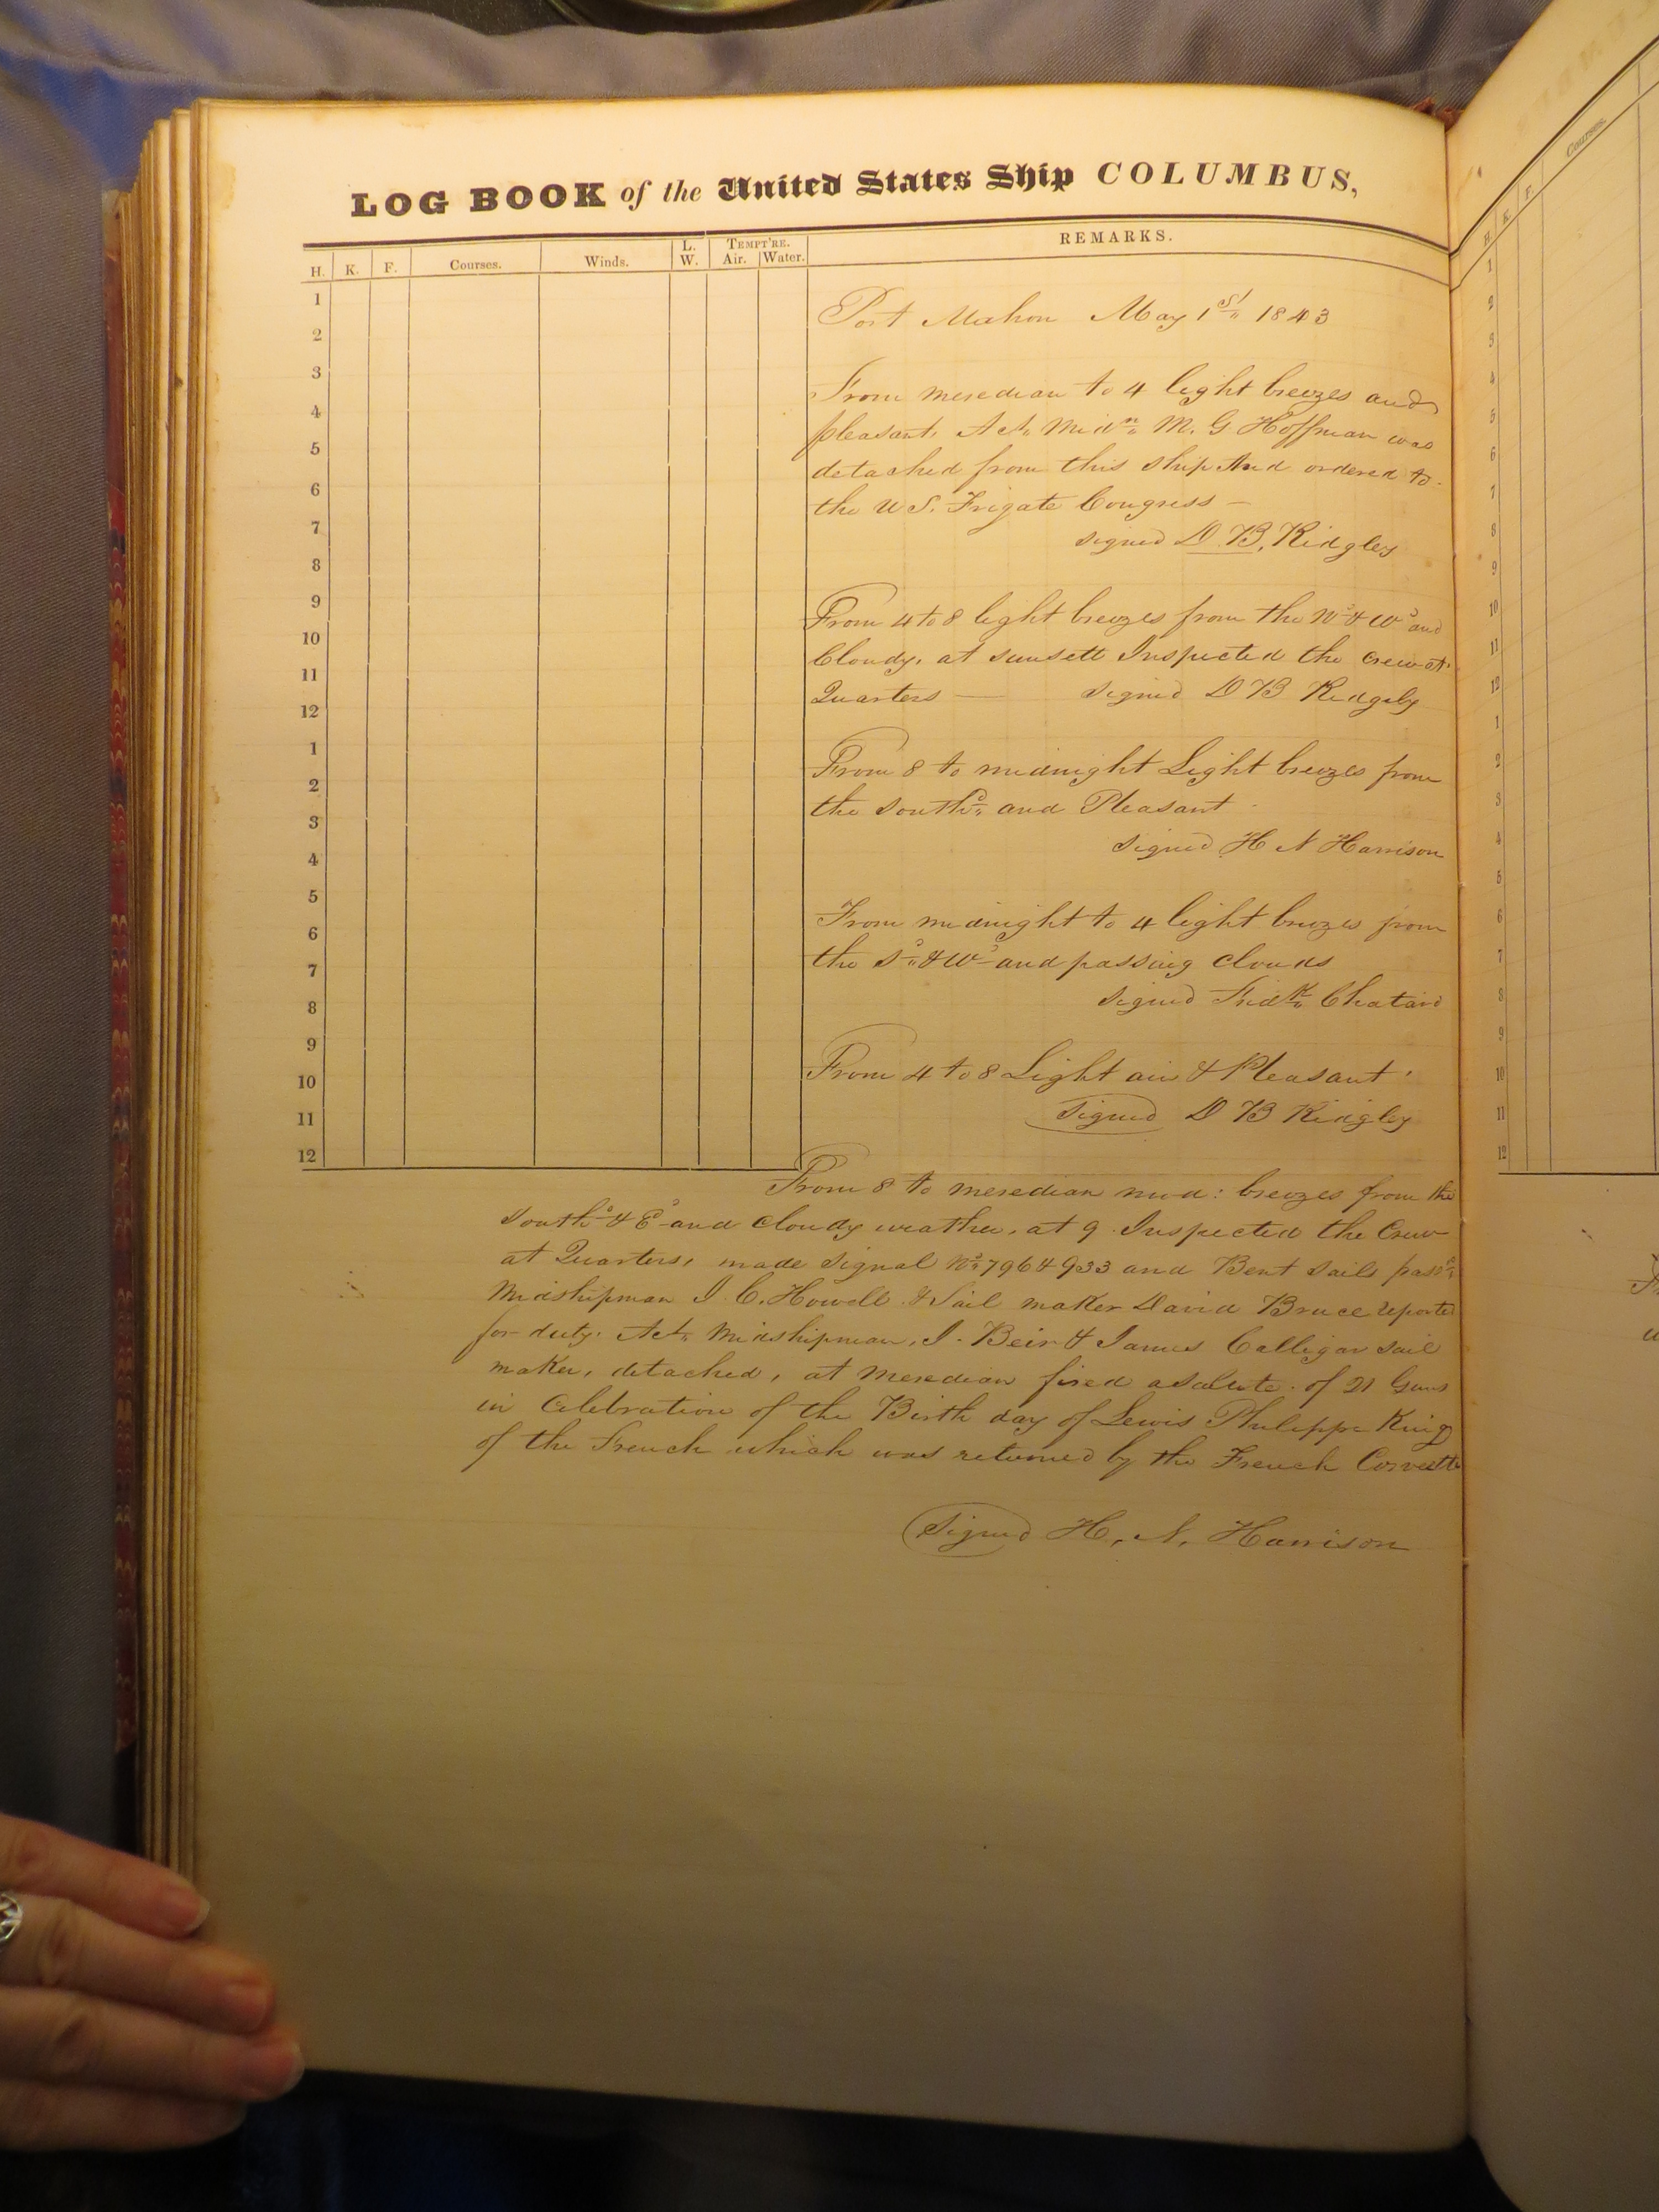 LOG BOOK of the United States Ship COLUMBUS,
H. K. F. Courses. Winds. L. W. TEMPT'RE. Air. Water. REMARKS.
1
2
3
4
5
6
7
8
9
10
11
12
1
2
3
4
5
6
7
8
9
10
11
12
Port Mahon May 1st 1843
From meredian to 4 light breezes and
pleasant. Act. Midn. M. G Hoffman was
detached from this ship And ordered to
the U S. Frigate Congress —
signed D. B. Ridgley
From 4 to 8 light breezes from the Nd & Wd and
Cloudy. at sunsett Inspected the crew at
Quarters — signed D B Ridgely
From 8 to midnight Light breezes from
the Southd. and Pleasant
signed H N Harrison
From midnight to 4 light breezes from
the Sd & Wd and passing clouds
signed Fredk. Chatard
From 4 to 8 Light airs & Pleasant
signed D B Ridgley
From 8 to meredian mod: breezes from the
Southd & Ed and cloudy weather. at 9 Inspected the Crew
at Quarters, made signal No 796 & 933 and Bent sails passd
Midshipman J. C. Howell & Sail maker David Bruce reported
for duty. Act. Midshipman, J. Beir & James Calligan sail
maker, detached, at Meredian fired a Salute of 21 Guns
in Celebration of the Birth day of Lewis Philippe King
of the French which was returned by the French Corvette
Signed H. N. Harrison
H. K. F. Courses.
1
2
3
4
5
6
7
8
9
10
11
12
1
2
3
4
5
6
7
8
9
10
11
12